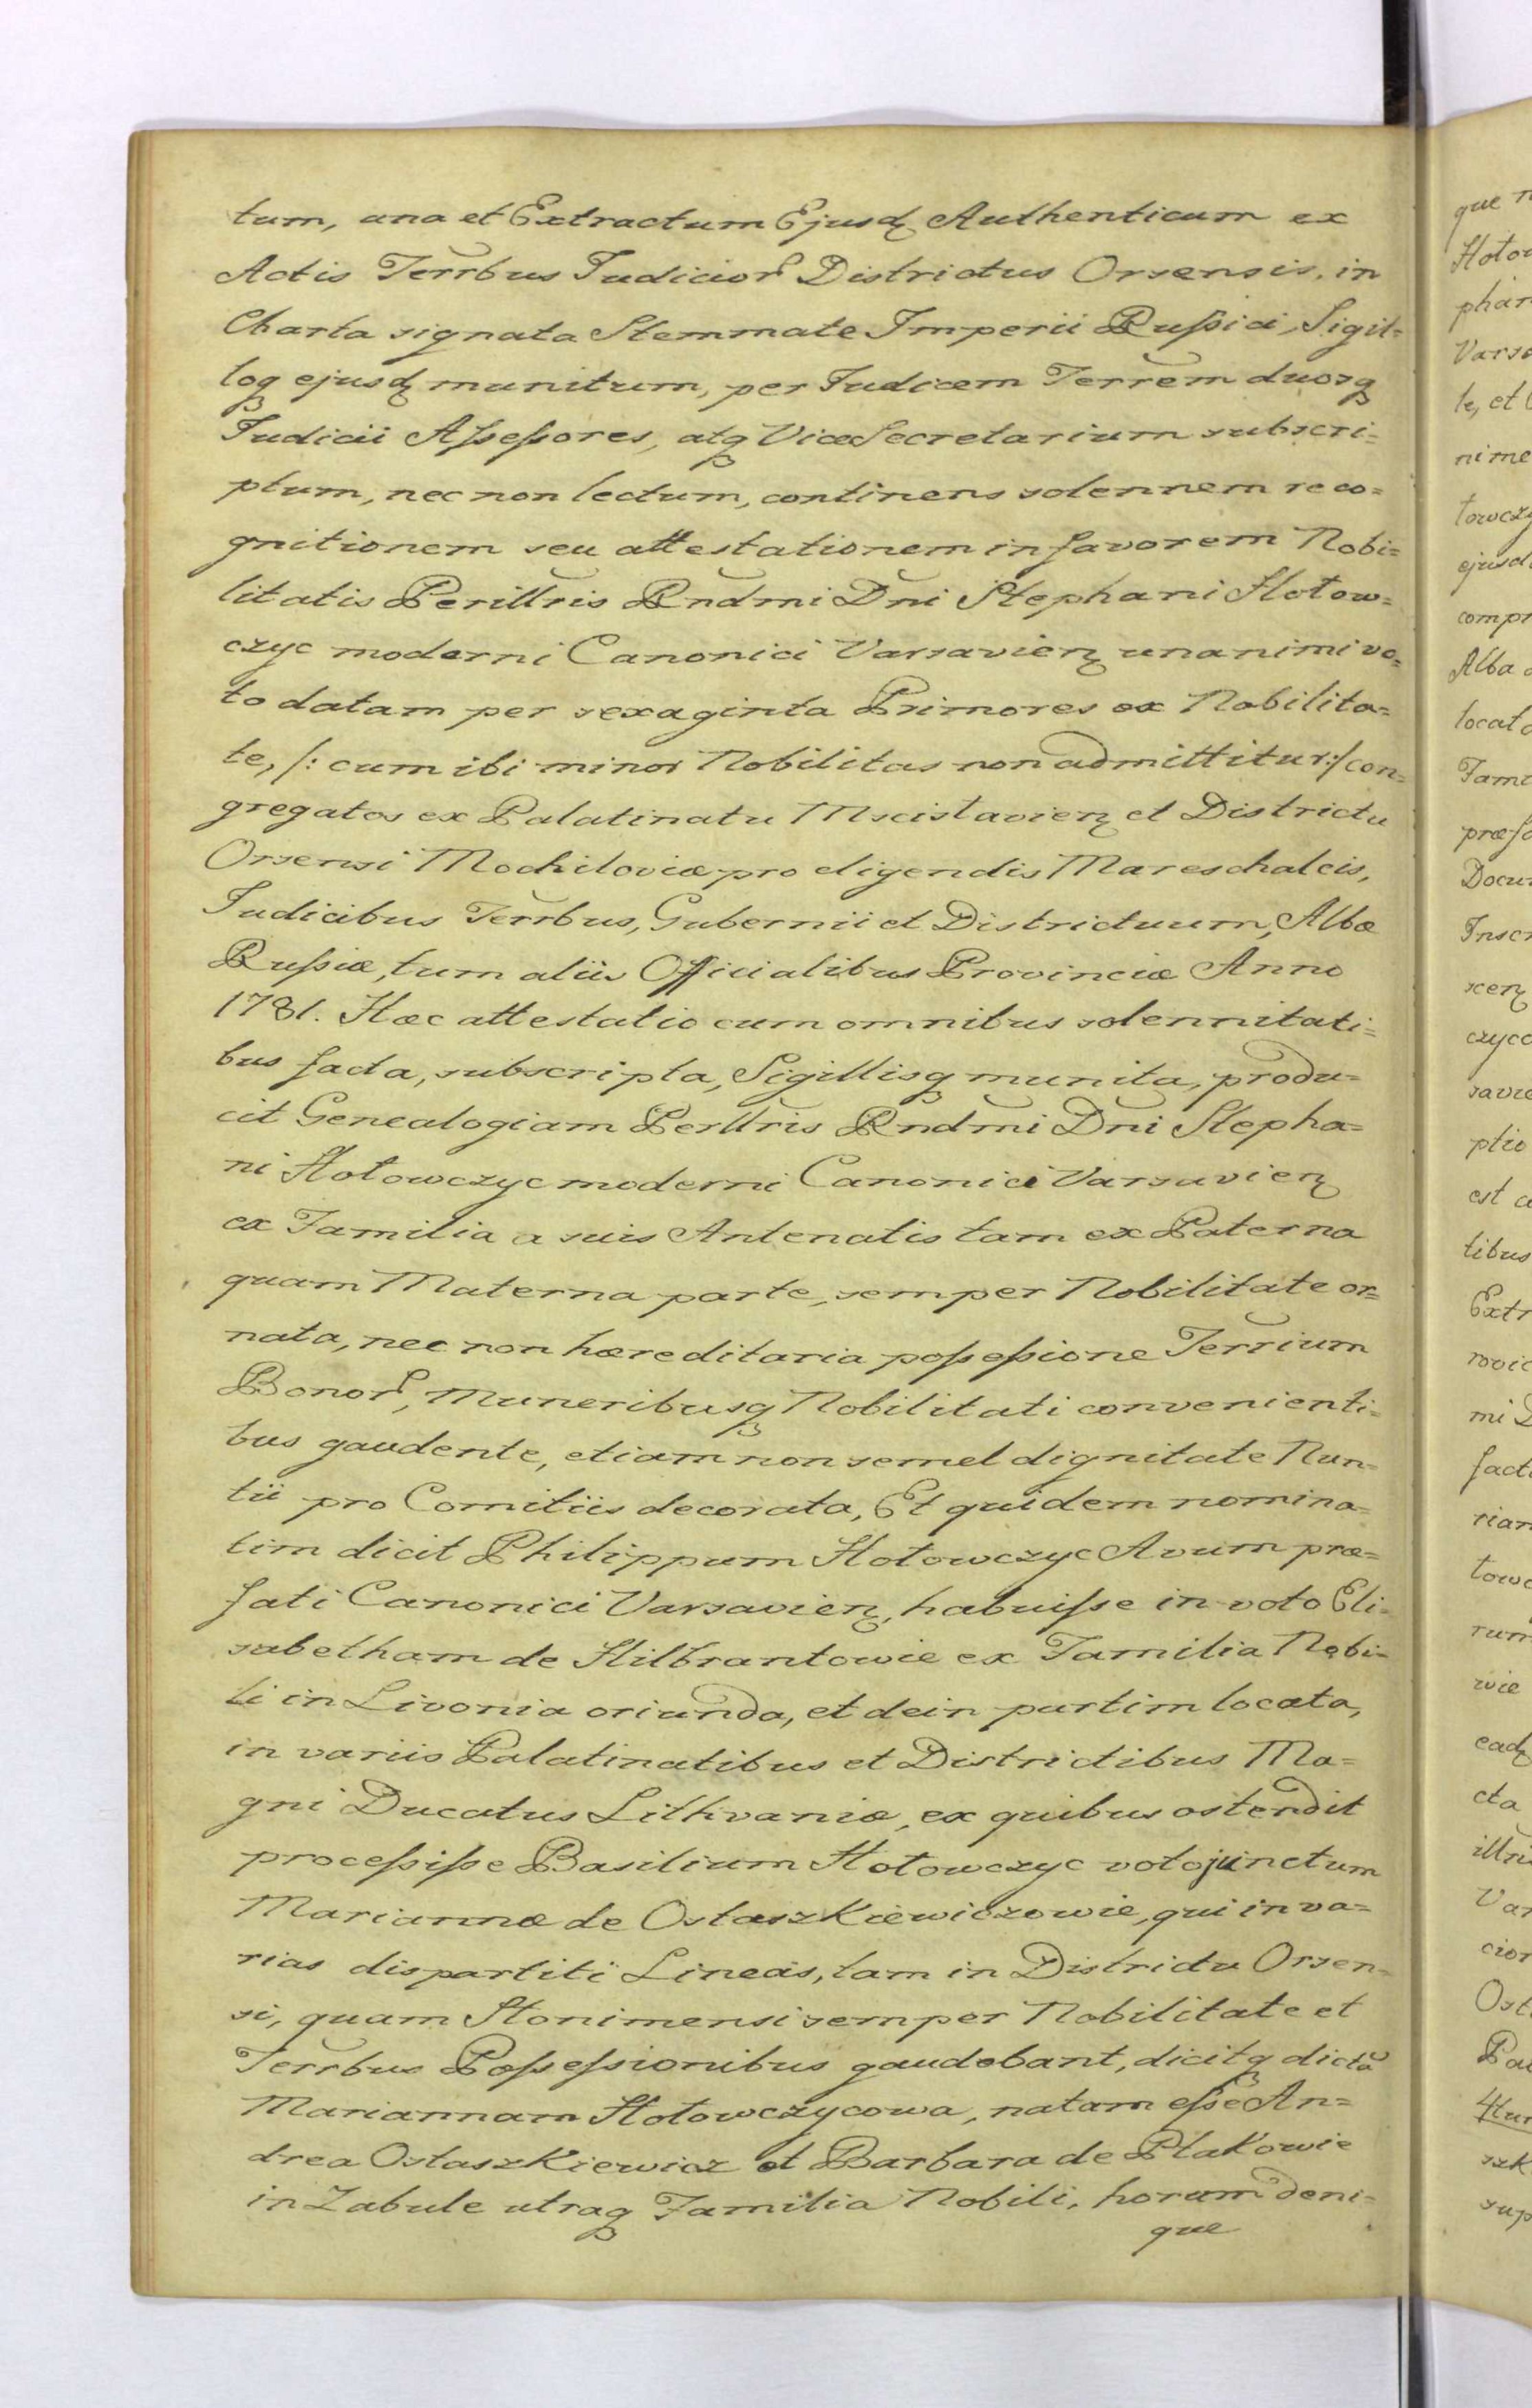 tum, una et Extractum Ejusdꝫ Authenticum ex
Actis Terr̃bus Judicior̃ Districtus Orsensis, in
Charta signata Stemmate Imperii Rußici, Sigil=
loq̃ ejusdꝫ munitum, per Judicem Terrẽm duosq̃
Judicii Aßeßores, atq̃ ViceSecretarium subscri=
ptum, nec non lectum, continens solennem reco=
gnitionem seu attestationem in favorem Nobi=
litatis Perillr̃is Rndm̃i Dñi Stephani Hołow=
czyc moderni Canonici Varsavienꝫ unanimi vo=
to datam per sexaginta Primores ex Nobilita=
te, /: cum ibi minor Nobilitas non admittitur :/ con=
gregatos ex Palatinatu Mscislavienꝫ et Districtu
Orsensi Mochiloviæ pro eligendis Mareschalcis,
Judicibus Terr̃bus, Gubernii et Districtuum, Albæ
Rußiæ, tum aliis Officialibus Provinciæ Anno
1781. Hæc attestatio cum omnibus solennitati=
bus facta, subscripta, Sigillisq̃ munita, produ=
cit Genealogiam Perllr̃is Rndm̃i Dñi Stepha=
ni Hołowczyc moderni Canonici Varsavienꝫ
ex Familia a suis Antenatis tam ex Paterna
quam Materna parte, semper Nobilitate or=
nata, nec non hæreditaria poßeßione Terr̃ium
Bonor̃, Muneribusq̃ Nobilitati convenienti=
bus gaudente, etiam non semel dignitate Nun=
tii pro Comitiis decorata, Et quidem nomina=
tim dicit Philippum Hołowczyc Avum præ=
fati Canonici Varsavienꝫ, habuiße in voto Eli=
sabetham de Hilbrantowie ex Familia Nobi=
li in Livonia oriunda, et dein partim locata,
in variis Palatinatibus et Districtibus Ma=
gni Ducatus Lithvaniæ, ex quibus ostendit
proceßiße Basilium Hołowczyc voto junctum
Mariannæ de Ostaszkiewiczowie, qui in va=
rias dispartiti Lineas, tam in Districtu Orsen=
si, quam Słonimensi semper Nobilitate et
Terr̃bus Poßeßionibus gaudebant, dicitq̃ dictã
Mariannam Hołowczycowa, natam eße An=
drea Ostaszkiewicz et Barbara de Ptakowie
in Zabule utraq̃ Familia Nobili, horum deni=
que